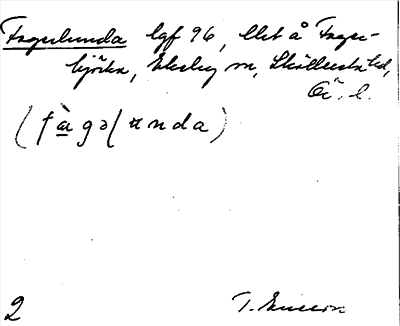 Fagerlunda lgf 96, litet å Fager-
björka, Ekeby sn, Skyllersta hd,
(fàgəlunda)
2 T. Ericson